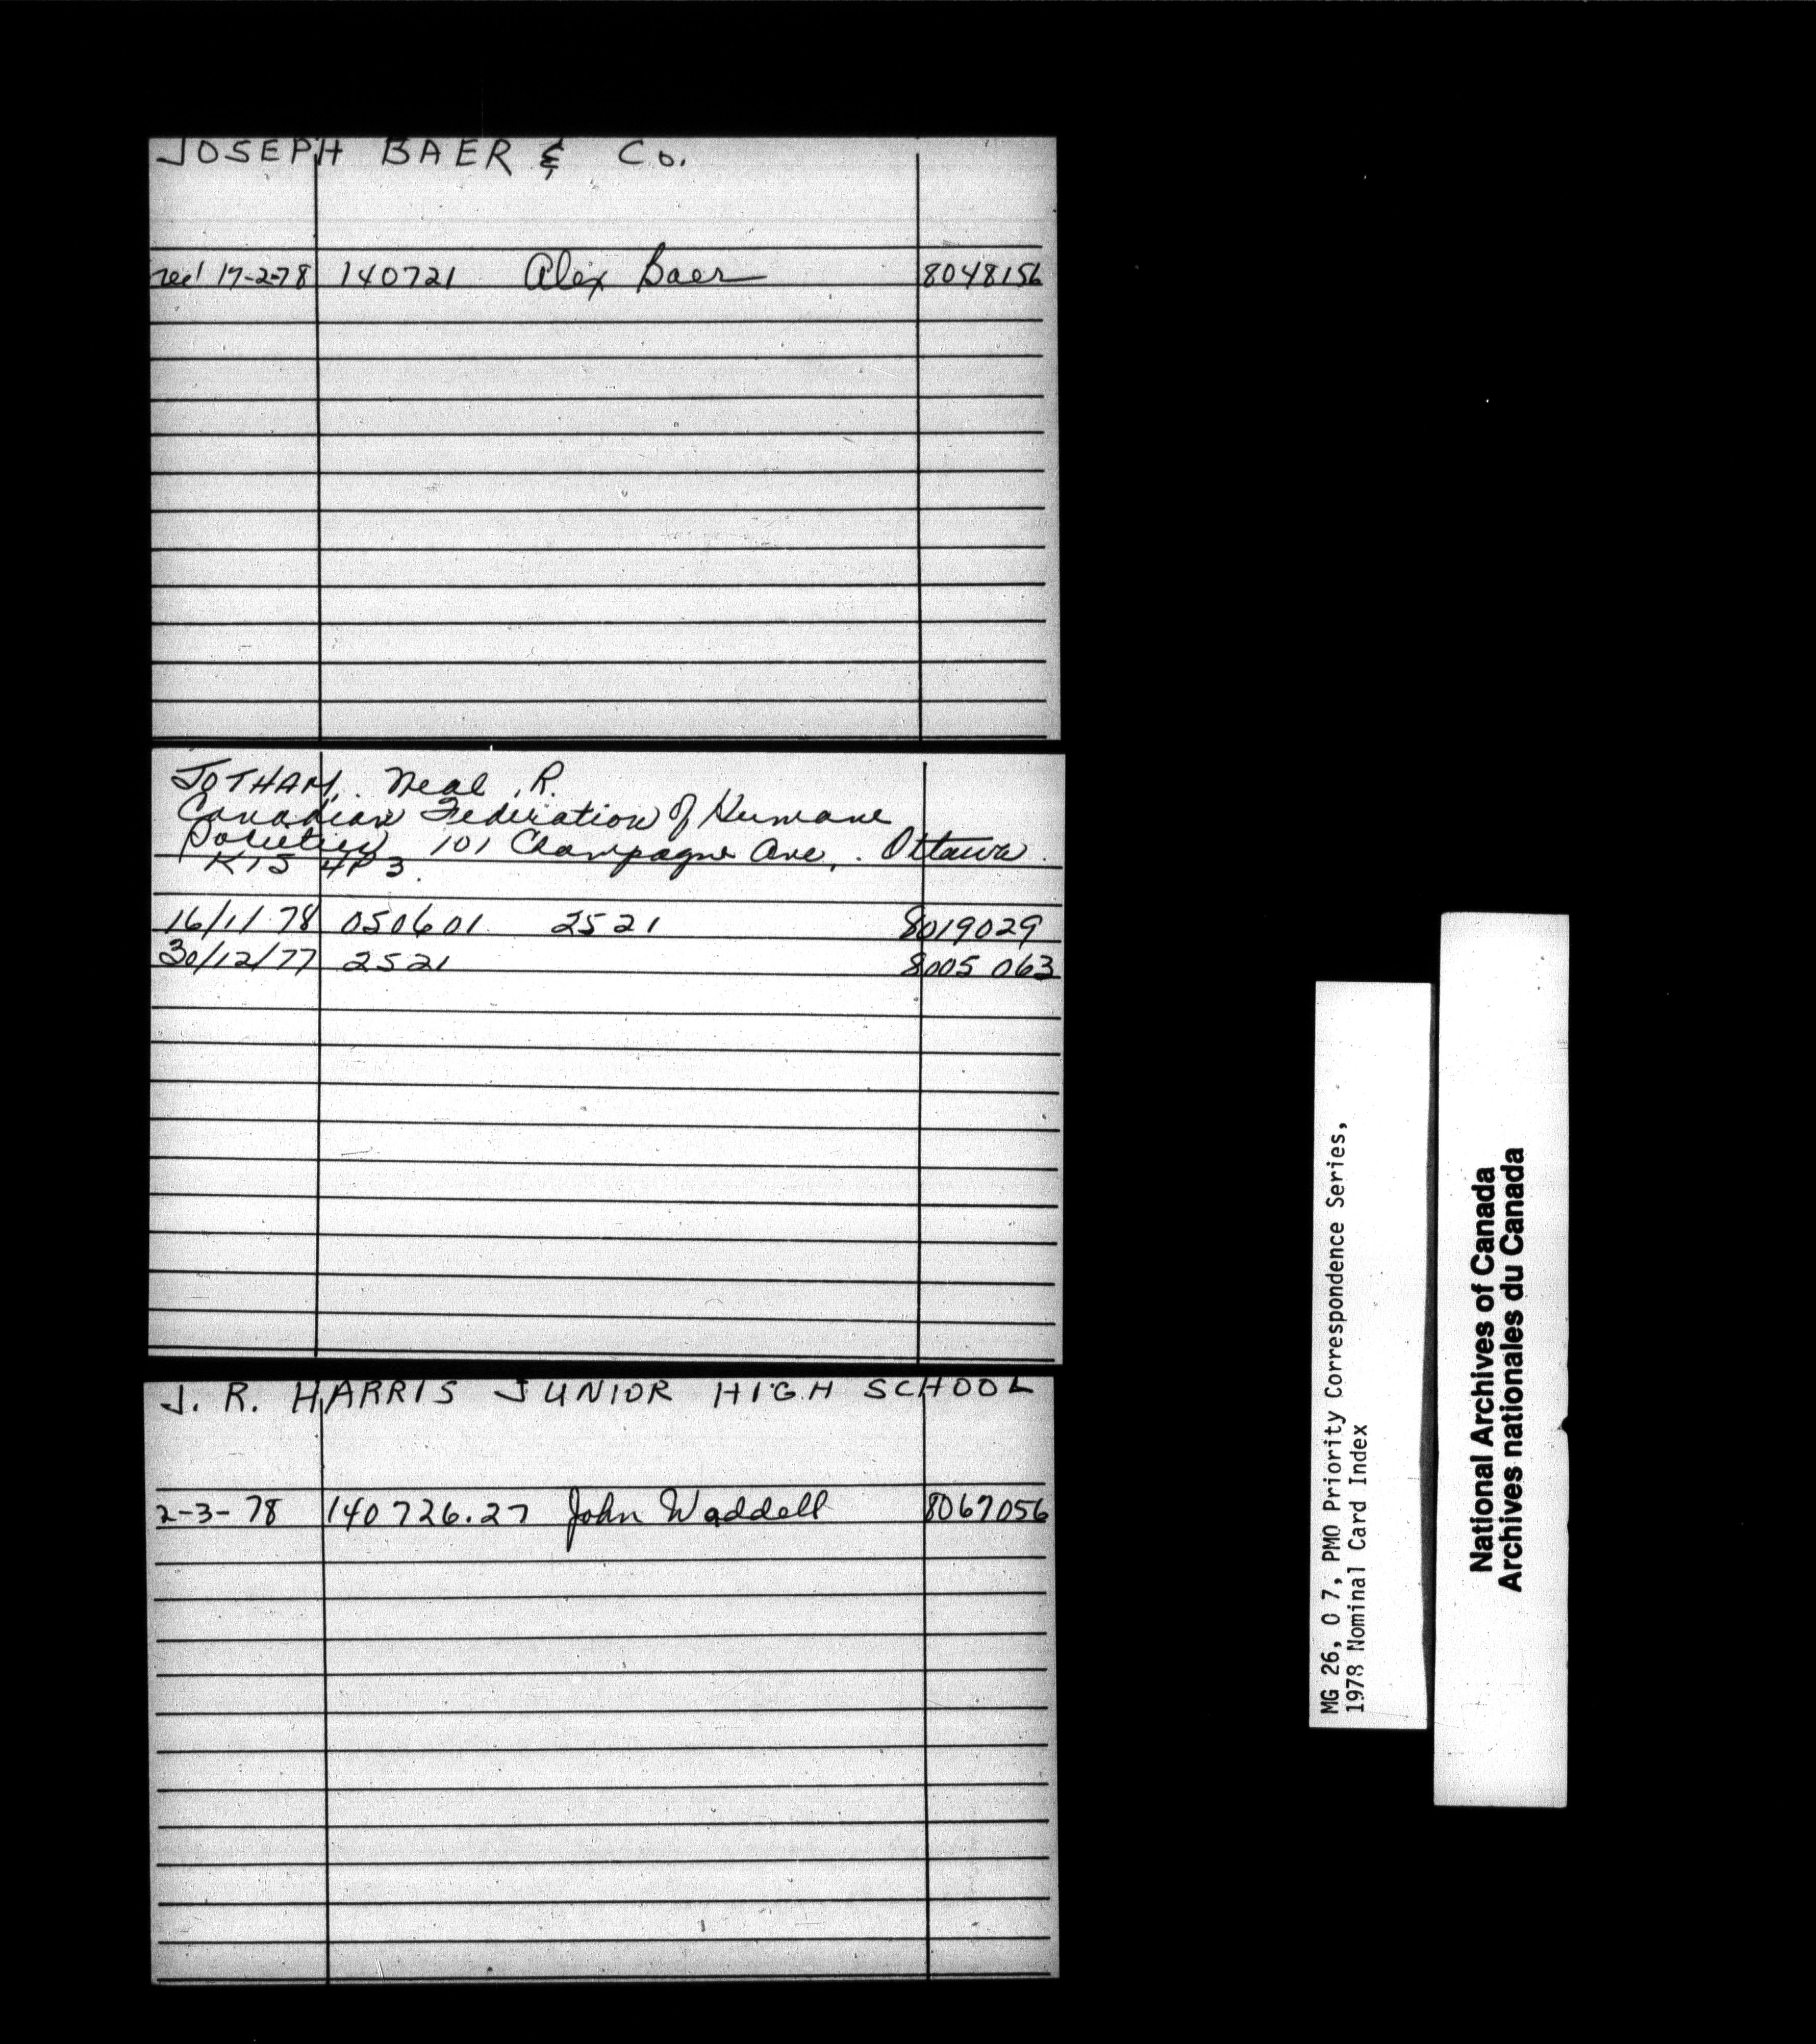 JOSEPH BAER & Co.
rec'd 17-2-78 140721 Alex Baer 8048156
JOTHAM, Neal R.
Canadian Federation of Humane
Societies 101 Champagne Ave, Ottawa
K1S 4P3.
16/11/78 050601 2521 8019029
30/12/77 2521 8005 063
J. R. HARRIS JUNIOR HIGH SCHOOL
2-3-78 140726.27 John Waddell 8067056
MG 26, O 7, PMO Priority Correspondence Series,
1978 Nominal Card Index
National Archives of Canada
Archives nationales du Canada